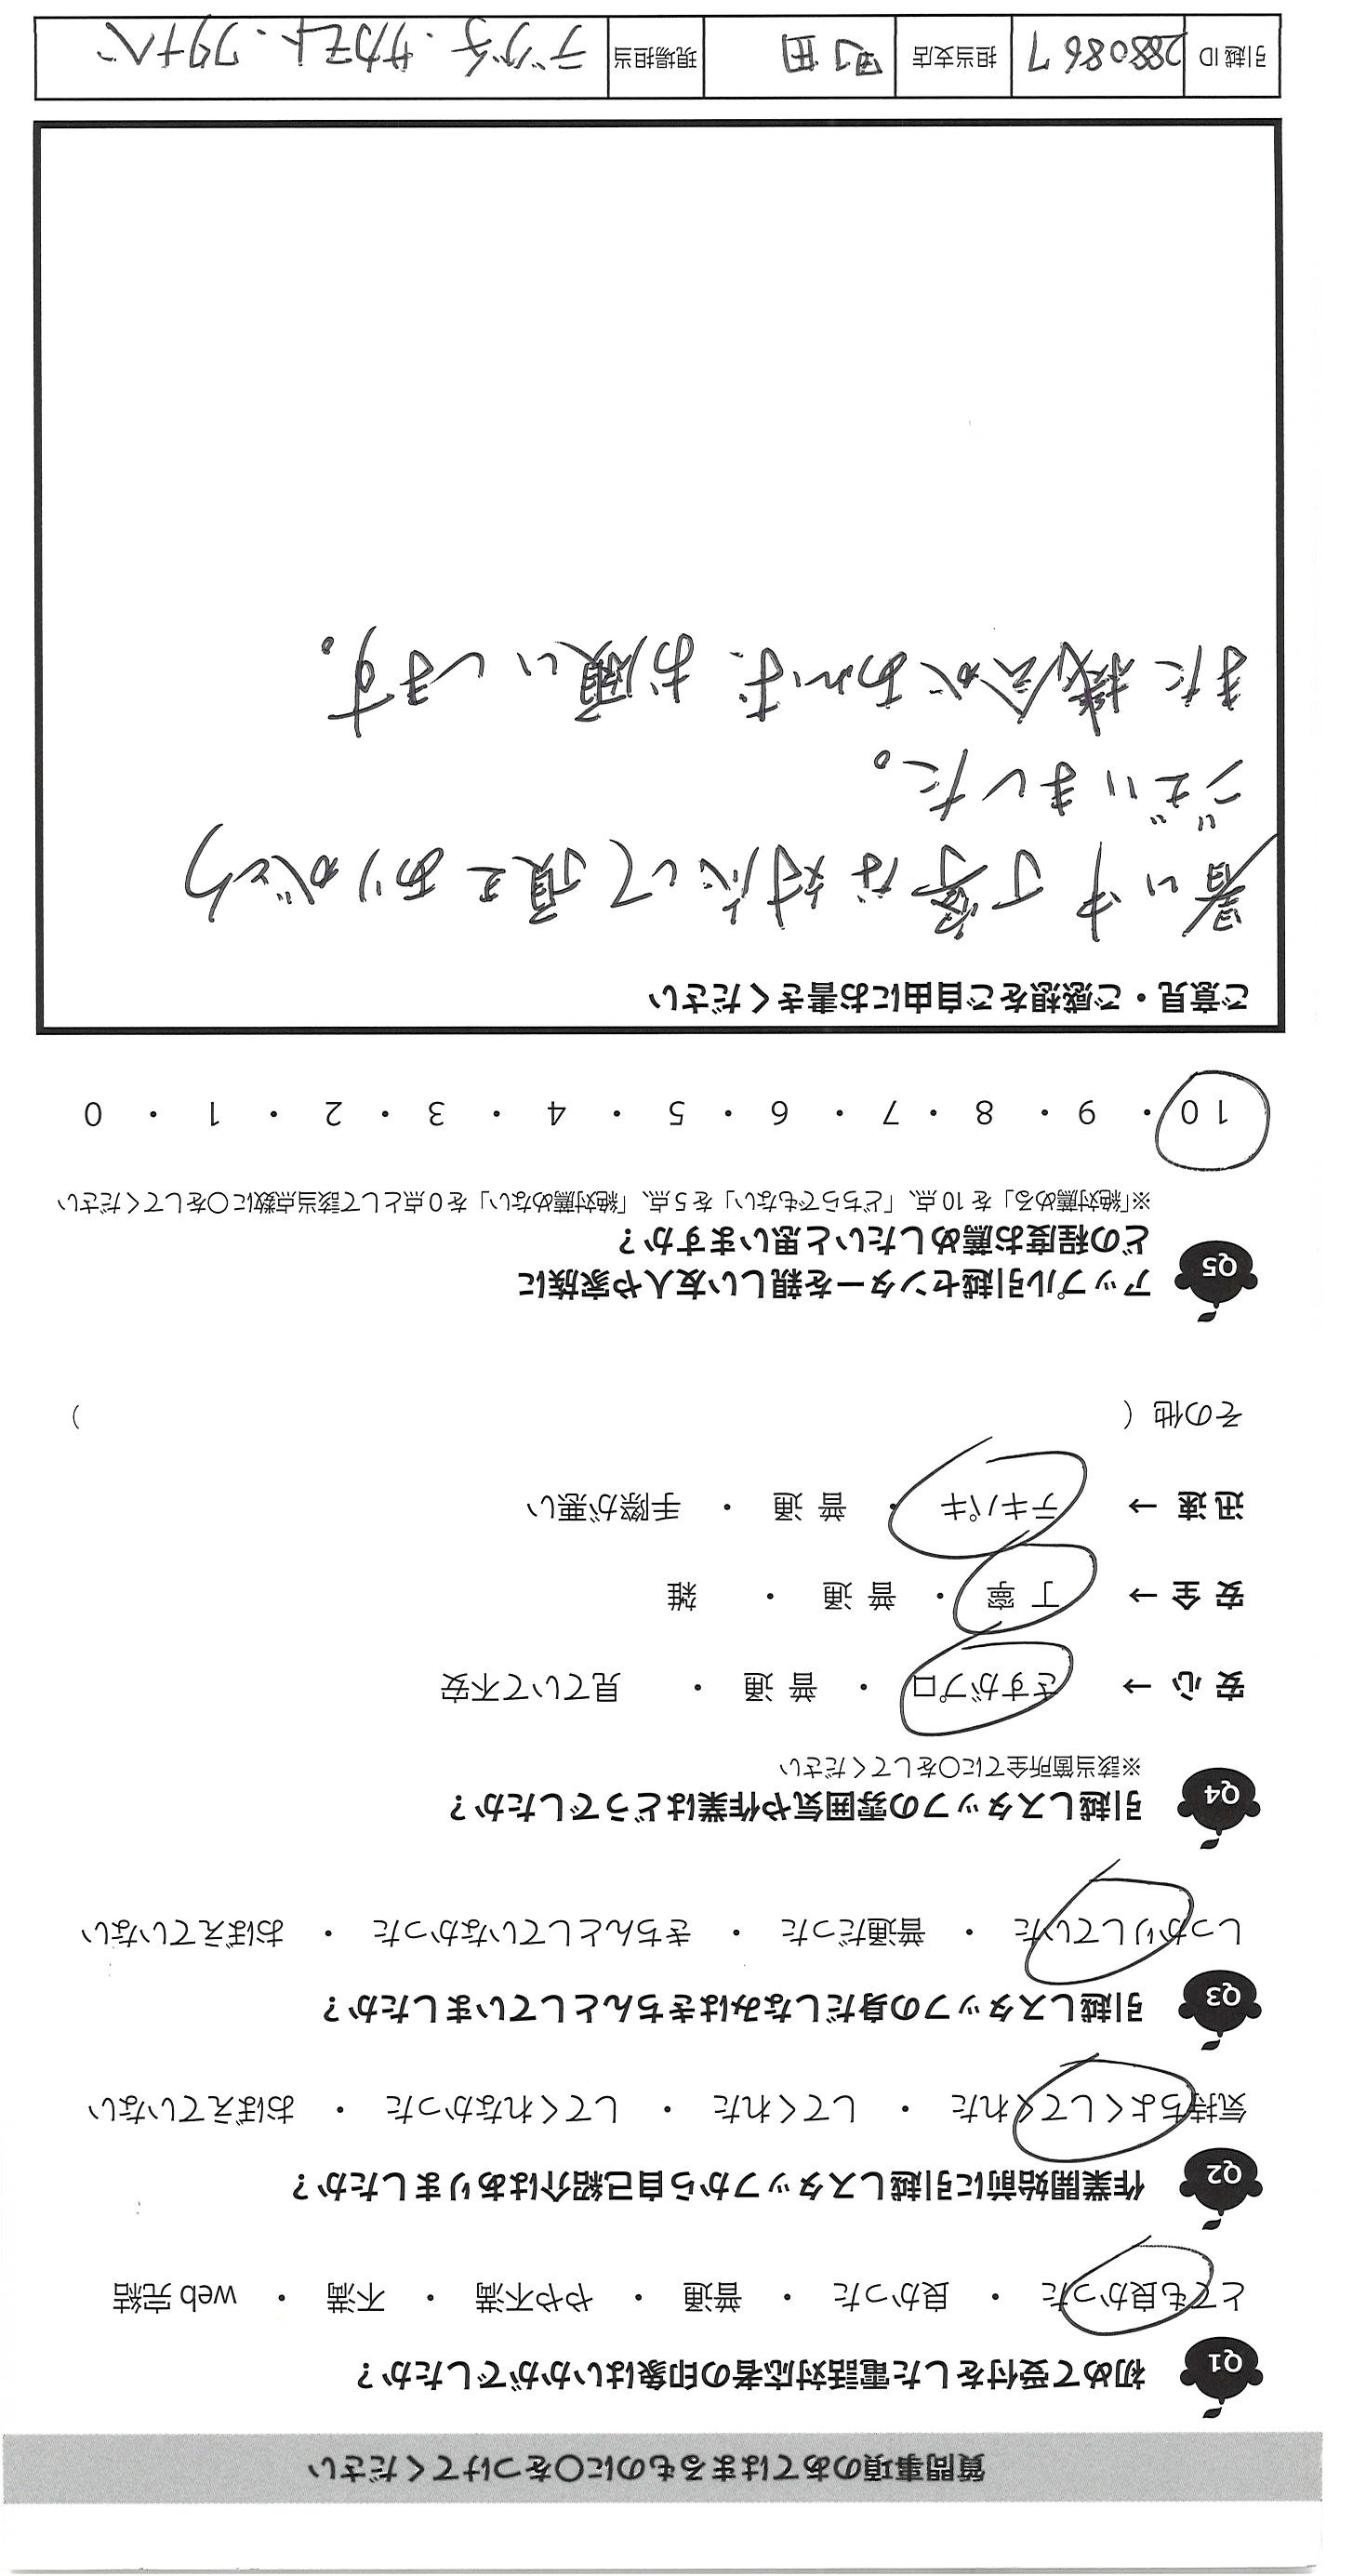 質問事項のあてはまるものに〇をつけてください
Q1 初めて受付をした電話対応者の印象はいかがでしたか？
とても良かった ・ 良かった ・ 普通 ・ やや不満 ・ 不満 ・ web 完結
Q2 作業開始前に引越しスタッフから自己紹介はありましたか？
気持ちよくしてくれた ・ してくれた ・ してくれなかった ・ おぼえていない
Q3 引越しスタッフの身だしなみはきちんとしていましたか？
しっかりしていた ・ 普通だった ・ きちんとしていなかった ・ おぼえていない
Q4 引越しスタッフの雰囲気や作業はどうでしたか？
※該当箇所全てに〇をしてください
安 心 → さすがプロ ・ 普 通 ・ 見ていて不安
安 全 → 丁 寧 ・ 普 通 ・ 雑
迅 速 → テキパキ ・ 普 通 ・ 手際が悪い
その他 （ ）
Q5 アップル引越センターを親しい友人や家族に
どの程度お薦めしたいと思いますか？
※「絶対薦める」を 10 点、「どちらでもない」を 5 点、「絶対薦めない」を 0 点として該当点数に〇をしてください
10 ・ 9 ・ 8 ・ 7 ・ 6 ・ 5 ・ 4 ・ 3 ・ 2 ・ 1 ・ 0
ご意見・ご感想をご自由にお書きください
暑い中丁寧な対応して頂きありがとう
ございました。
また機会があれば、お願いします。
引越 ID 2880867 担当支店 町田 現場担当 デグチ・サカモト・ワタナベ